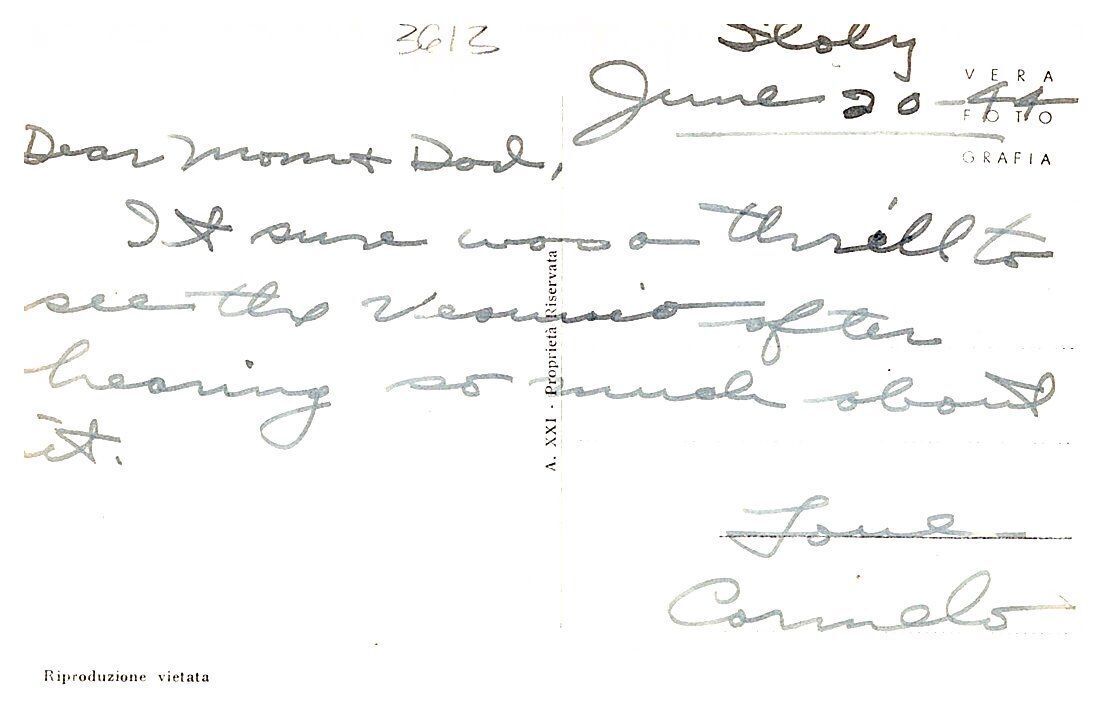 3613
Italy
June 20 - 44
VERA
FOTO
GRAFIA
Dear Mom + Dad,
It sure was a thrill to
see the Vesuvio after
hearing so much about
it.
A. XXI - Proprietà Riservata
Love -
Carmelo
Riproduzione vietata